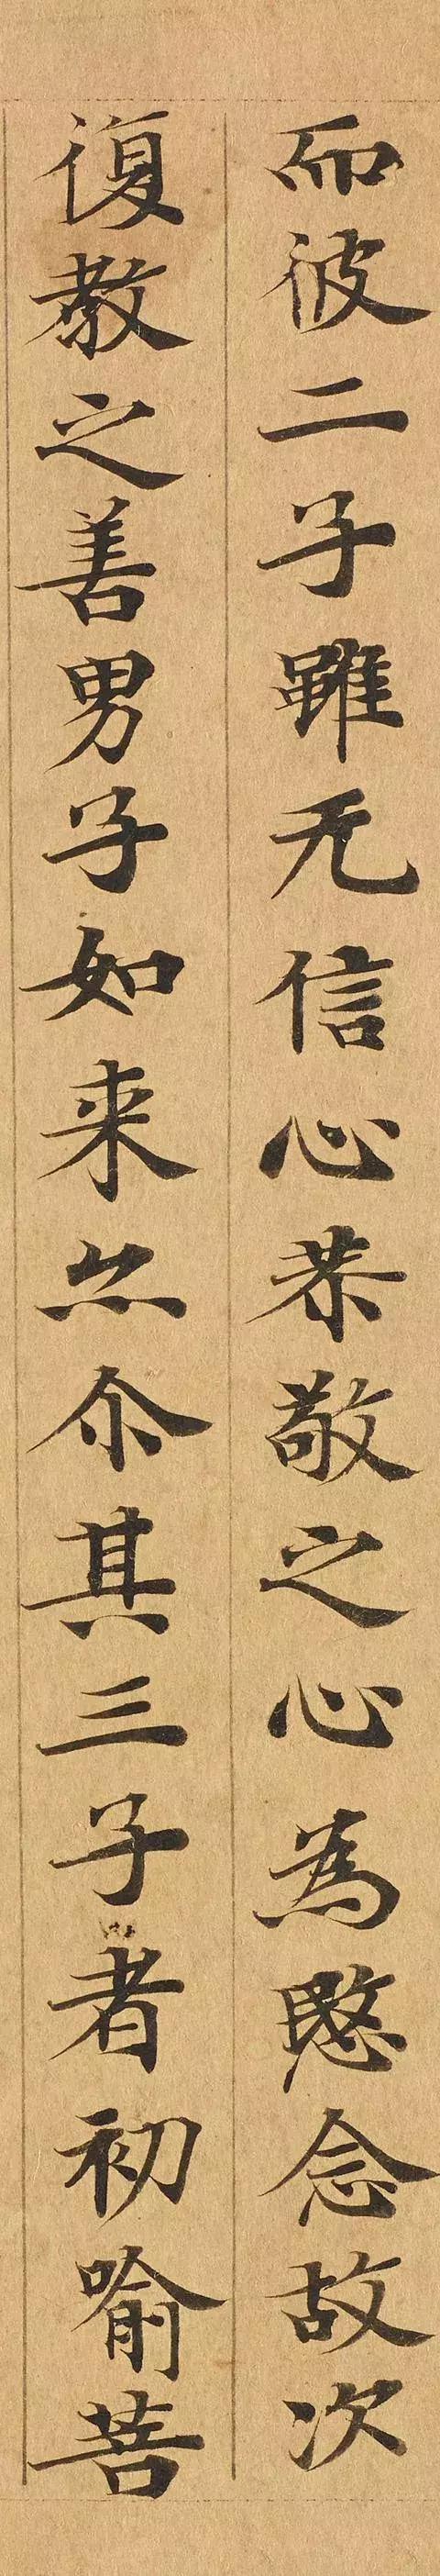 而彼二子雖无信心恭敬之心為愍念故次
復教之善男子如来亦尒其三子者初喻菩